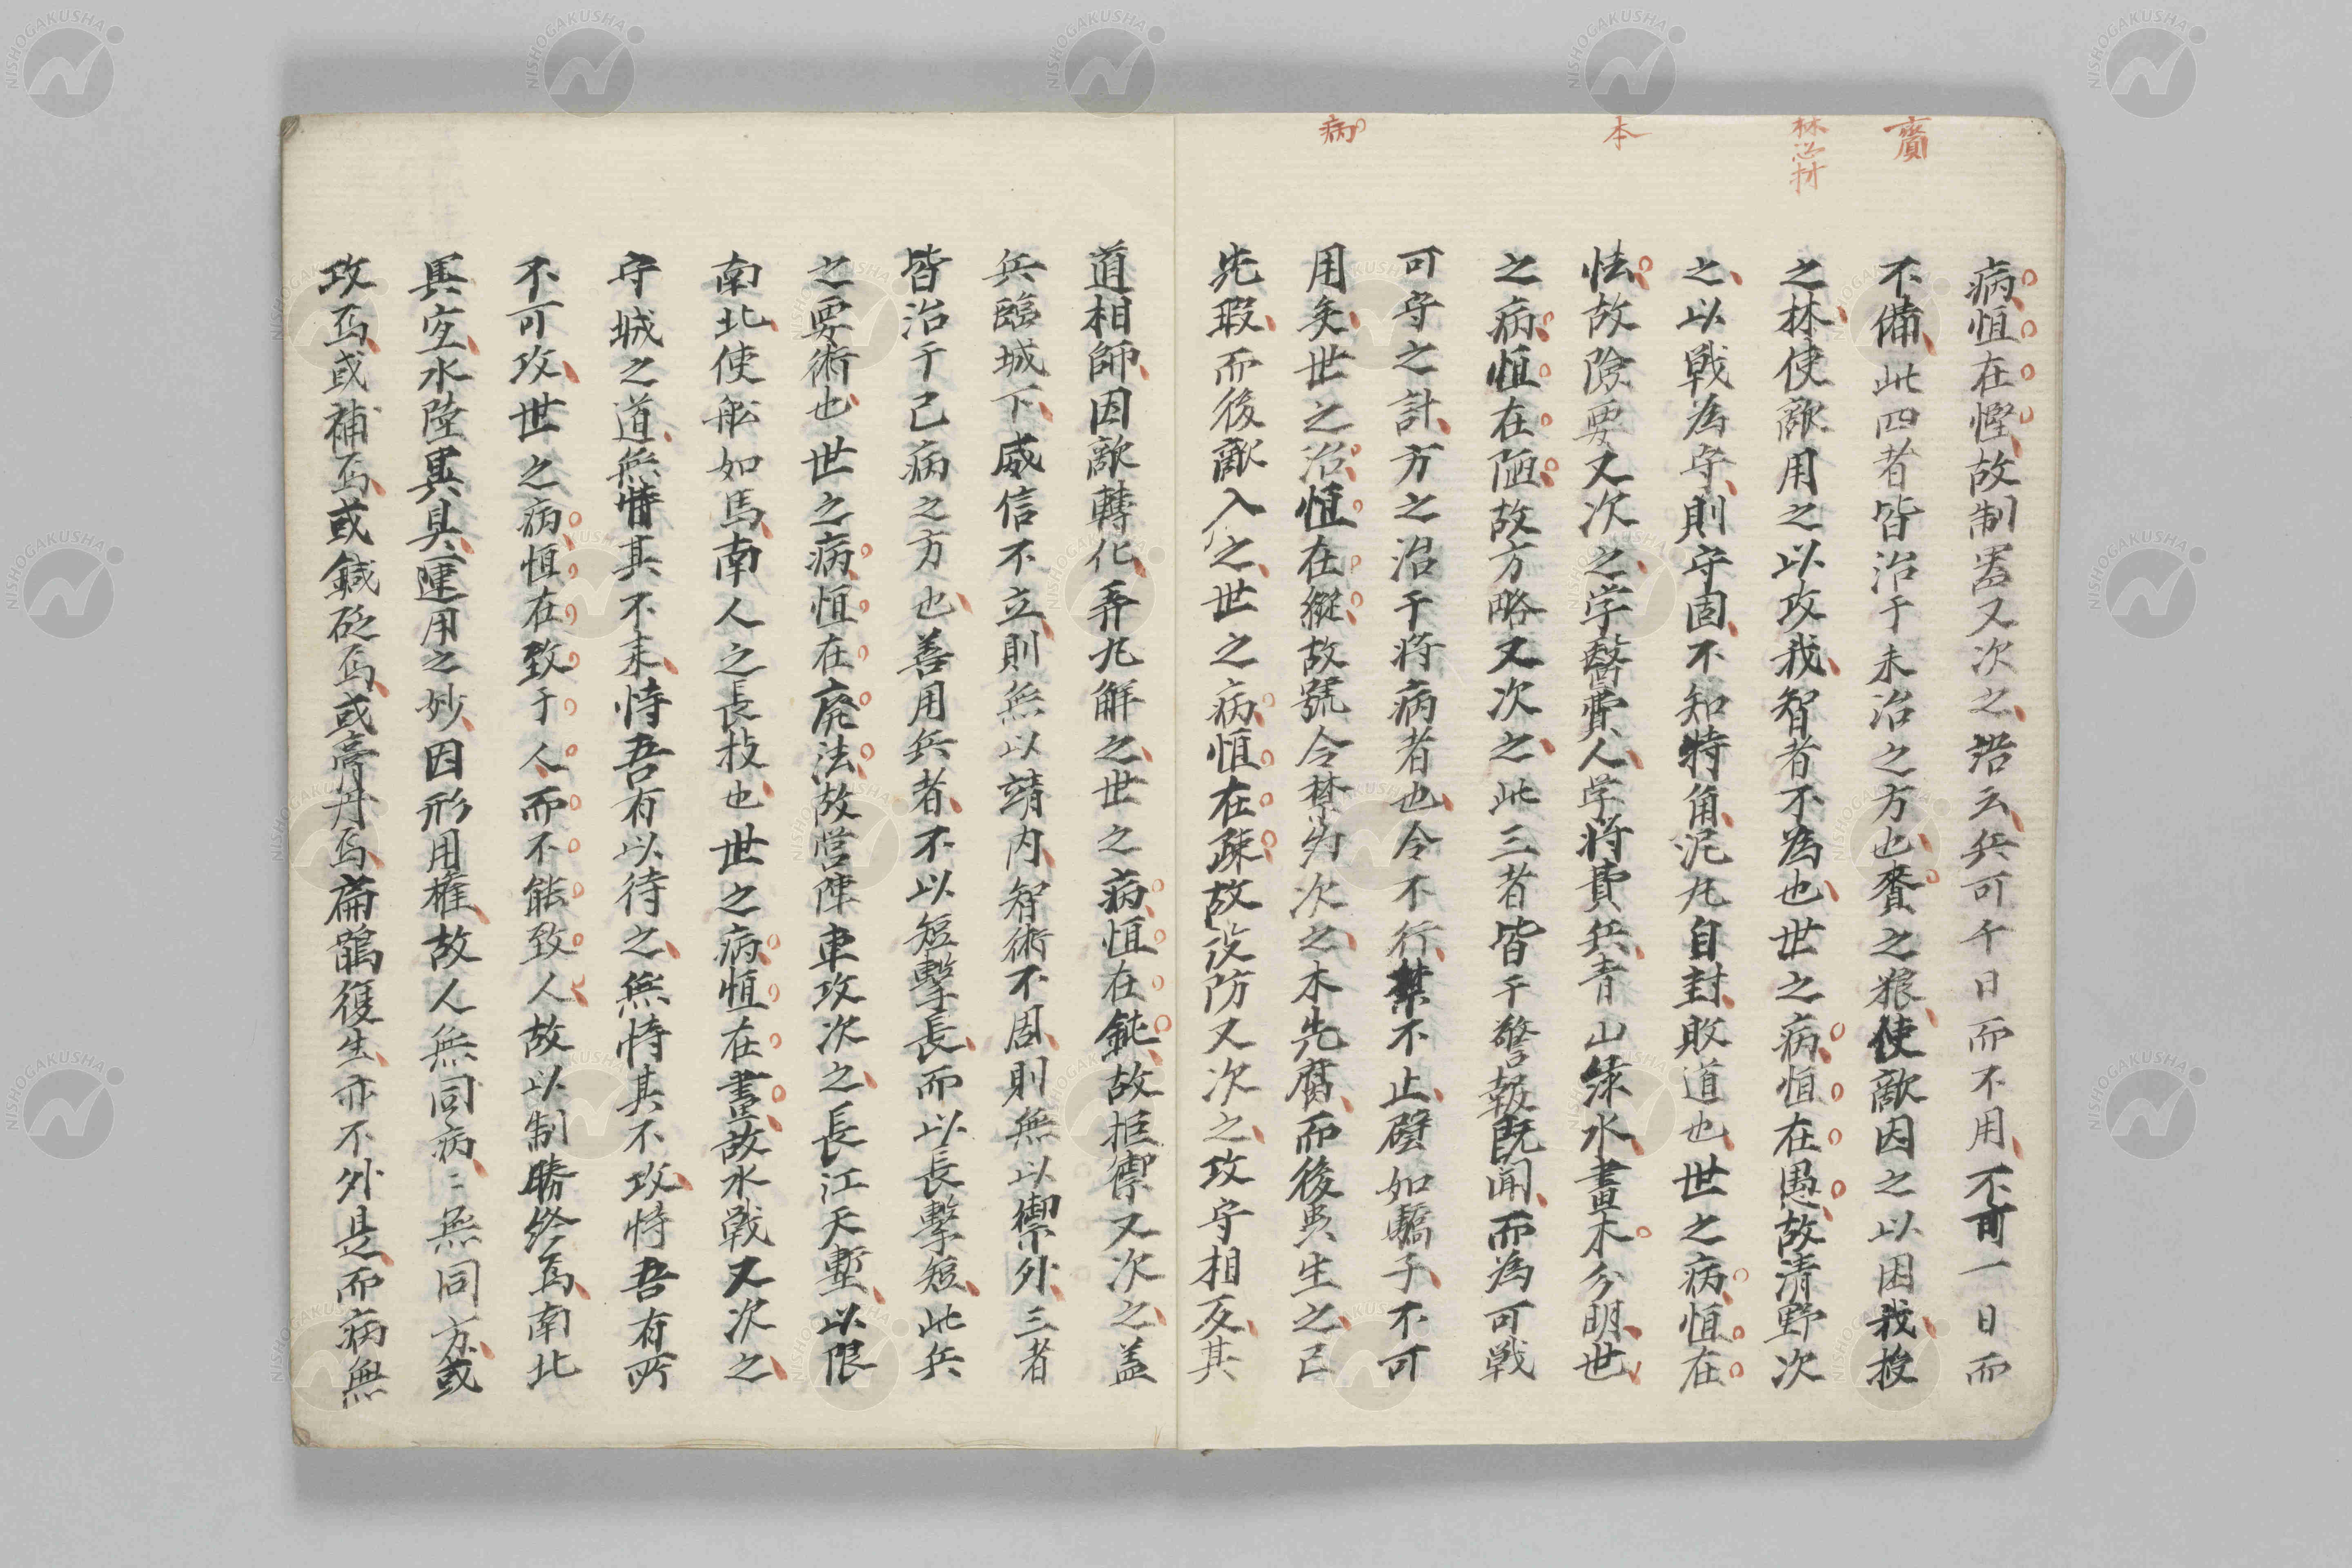 齎
林恐材
本
病
病恒在慳故制器又次之語云兵可千日而不用不可一日而
不備此四者皆治于未治之方也賫之粮使敵因之以困我授
之林使敵用之以攻我智者不為也世之病恒在愚故清野次
之以戦為守則守固不知犄角泥丸自封敗道也世之病恒在
怯故險要又次之学醫費人学将費兵青山緑水畫木分明世
之病恒在陋故方略又次之此三者皆于警報既闻而為可戦
可守之計方之治于将病者也令不行禁不止譬如驕子不可
用矣世之治恒在縱故號令禁約次之木先腐而後蟲生之己
先瑕而後敵入之世之病恒在疎故设防又次之攻守相反其
道相師因敵轉化弄丸觧之世之病恒在鈍故拒禦又次之盖
兵臨城下威信不立則無以靖内智術不周則無以禦外三者
皆治于己病之方也善用兵者不以短擊長而以長擊短此兵
之要術也世之病恒在廃法故営陣車攻次之長江天塹以限
南北使船如馬南人之長技也世之病恒在畫故水戦又次之
守城之道無恃其不来恃吾有以待之無恃其不攻恃吾有所
不可攻世之病恒在致于人而不能致人故以制勝终焉南北
異宜水陸異具運用之妙因形用權故人無同病〻無同方或
攻焉或補焉或鍼砭焉或膏丹焉扁鵲復生亦不外是而病無